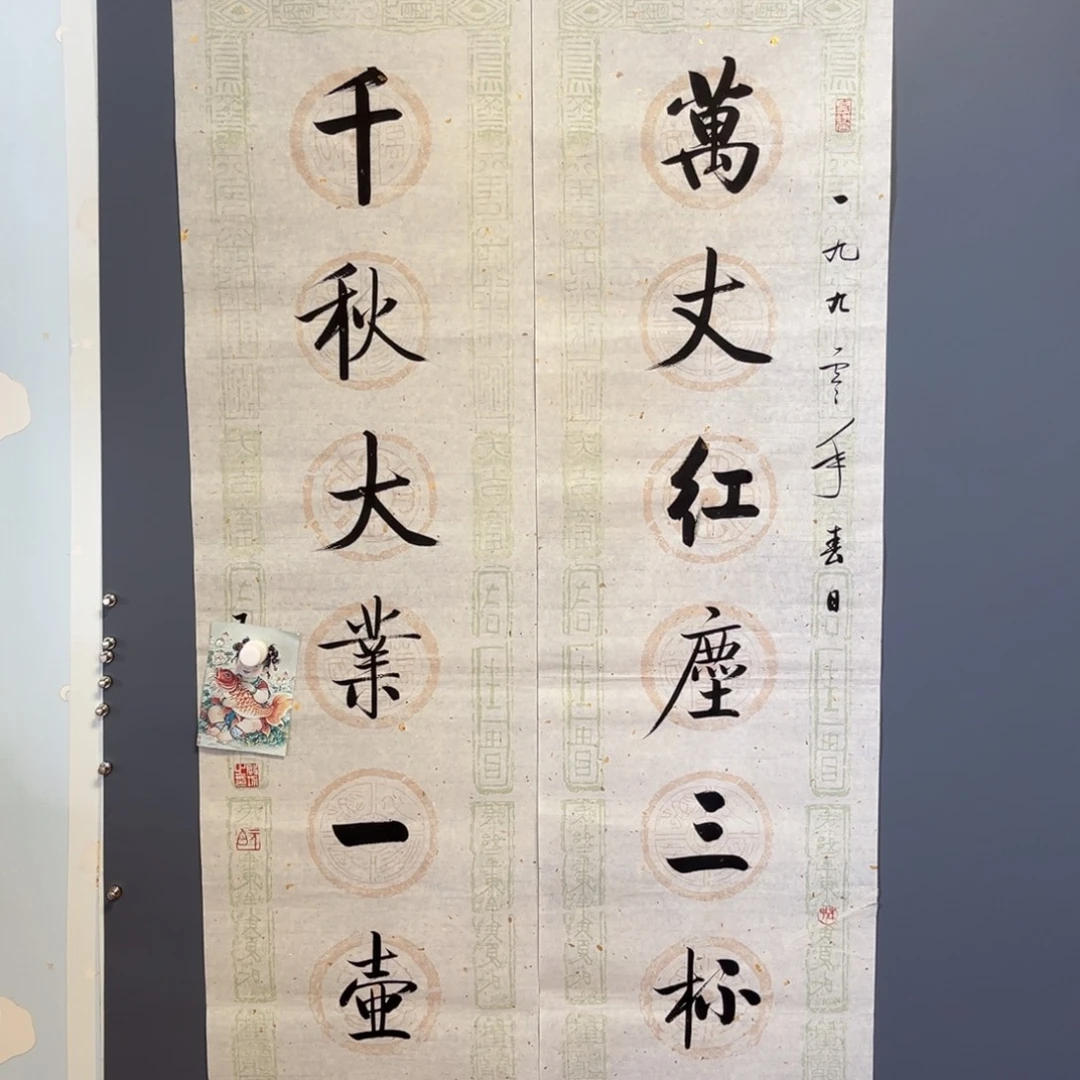 一九九零年春日
萬丈红塵三杯
千秋大業一壺